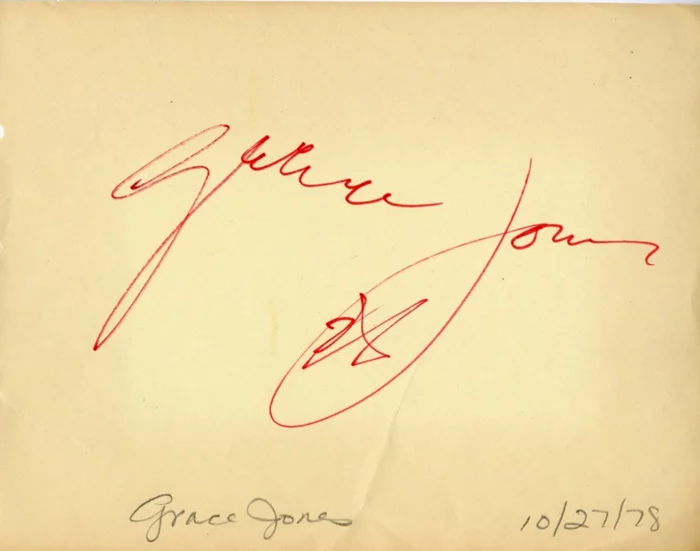 Grace Jones
Grace Jones 10/27/78